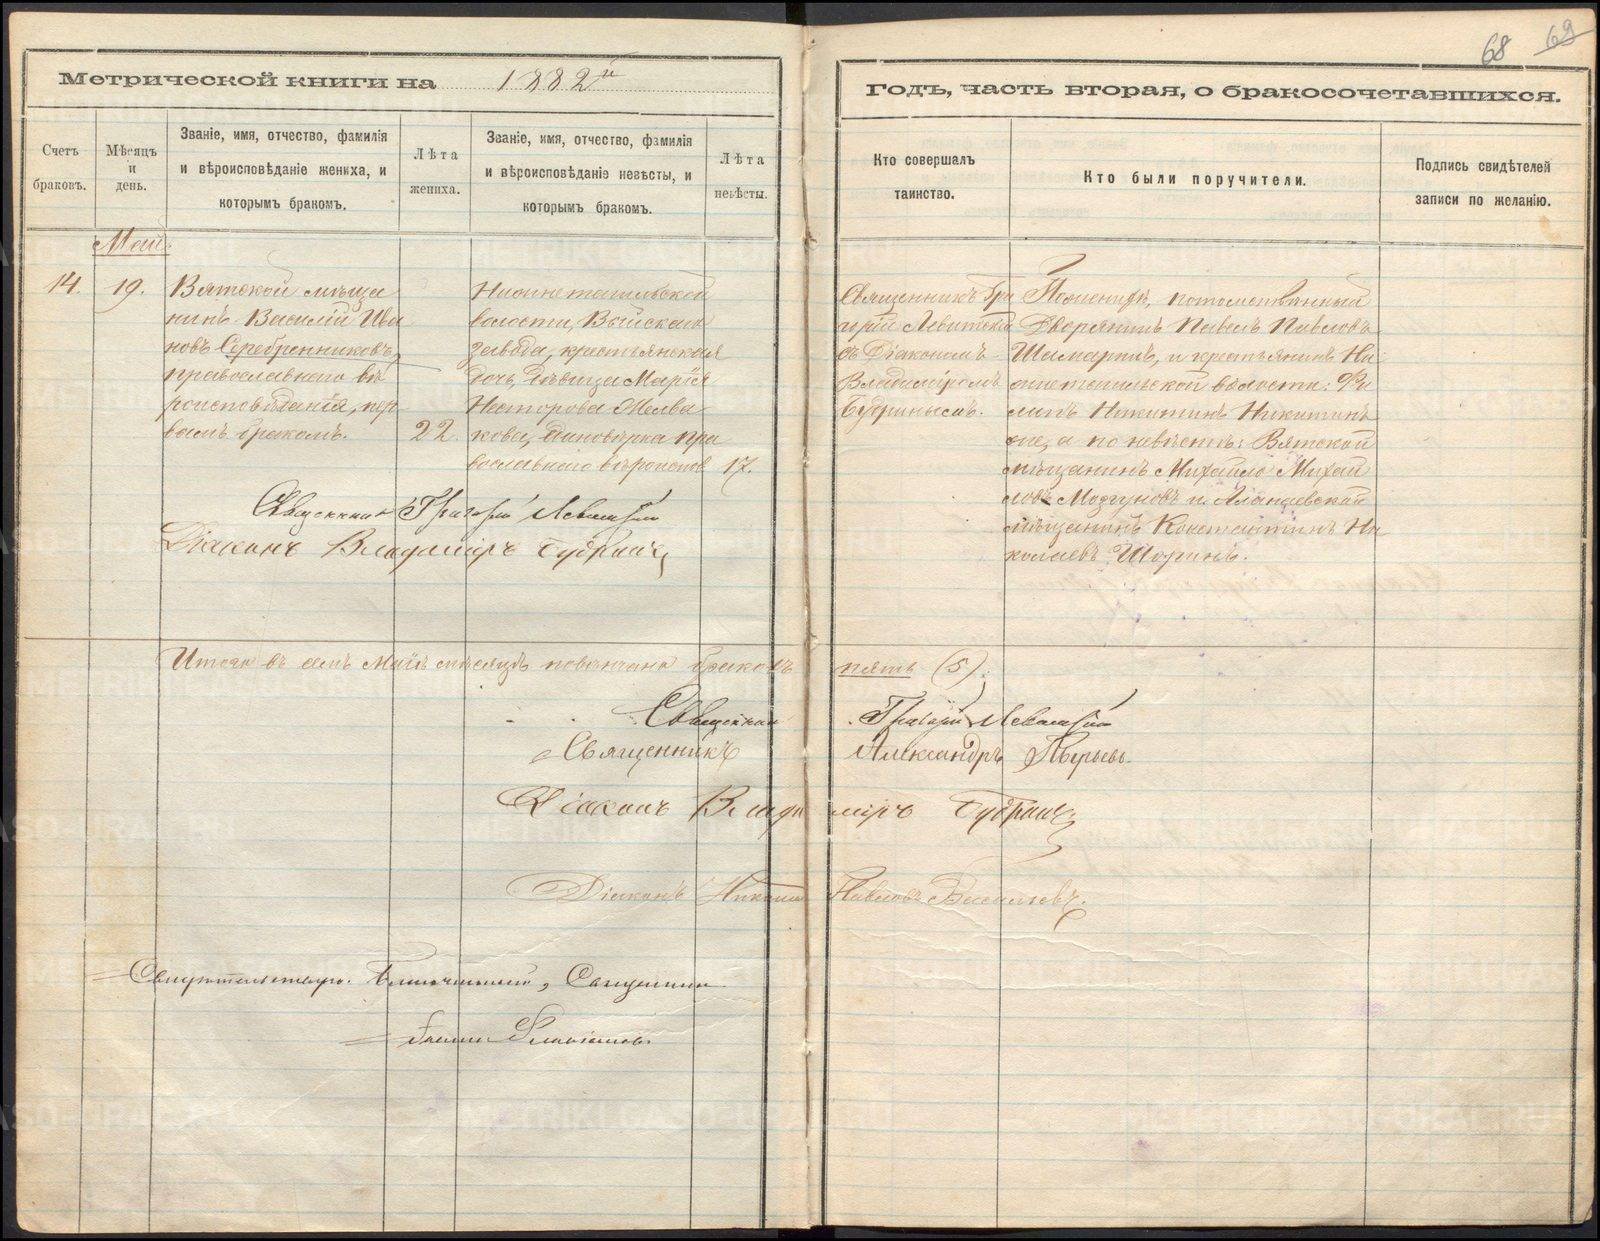 68 69
Метрической книги на 1882й
Годъ, часть вторая, о бракосочетавшихся.
Счетъ браковъ.
Мѣсяцъ и день.
Званіе, имя, отчество, фамилія
и вѣроисповѣданіе жениха, и
которымъ бракомъ.
Лѣта жениха.
Званіе, имя, отчество, фамилія
и вѣроисповѣданіе невѣсты, и
которымъ бракомъ.
Лѣта невѣсты.
Кто совершалъ
таинство.
Кто были поручители.
Подпись свидѣтелей
записи по желанію.
Май.
14. 19.
Вятской мѣща
нинъ Василій Ива
новъ Серебренниковъ,
православнаго вѣ
роисповѣданія, пер
вымъ бракомъ.
22.
Нижнетагильской
волости, Выйскаго
завода, крестьянская
дочь, дѣвица Марія
Несторова
кова, единовѣрка пра
вославнаго вѣроиспов
17.
Священникъ Гри
горій Левитскій
съ Діакономъ
Владиміромъ
Будринымъ.
По женихѣ, потомственный
Дворянинъ Павелъ Павловъ
Шамаринъ, и крестьянинъ Ни
жнетагильской волости: Фи
липъ Никитинъ Никитинъ
же, а по невѣстѣ: Вятской
мѣщанинъ Михайло Михай
ловъ и Алапаевской
мѣщанинъ Константинъ Ни
колаевъ Шоринъ.
Священникъ Григорій Левитскій
Діаконъ Владиміръ Будринъ
Итого въ семъ Маѣ мѣсяцѣ повѣнчано браковъ пять (5).
Священникъ Григорій Левитскій
Священникъ Александръ
Діаконъ Владиміръ Будринъ
Діаконъ Никтополіонъ Павловъ Васильевъ.
Свидѣтельствую. Благочинный, Священникъ
Іоаннъ Флавіановъ.
METRIKI.GASO-URAL.RU